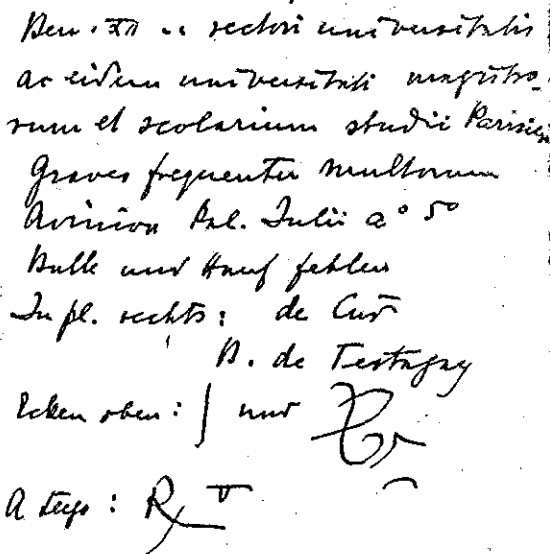 Ben. XII .. rectori universitatis
ac eidem universitati magistro-
rum et scolarium studii Parisien
Graves frequenter multorum
Avinion kal. Iulii a° 5°
Bulle und Hanf fehlen
In pl. rechts: de Cur̄
B. de
Ecken oben: | und
A tergo: R